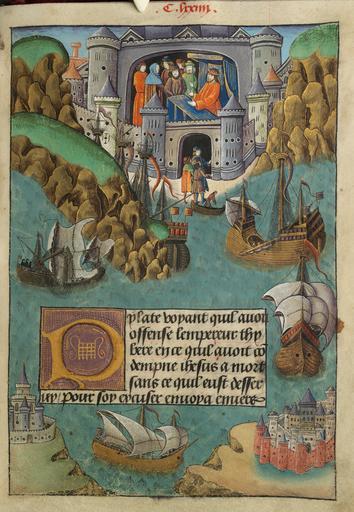 Pylate voyant quil auoit
offense lempereur thy
bere en ce quil auoit co
dempne ihesus a mort
sans ce quil eust desser
uy pour soy excuser enuoya enuers